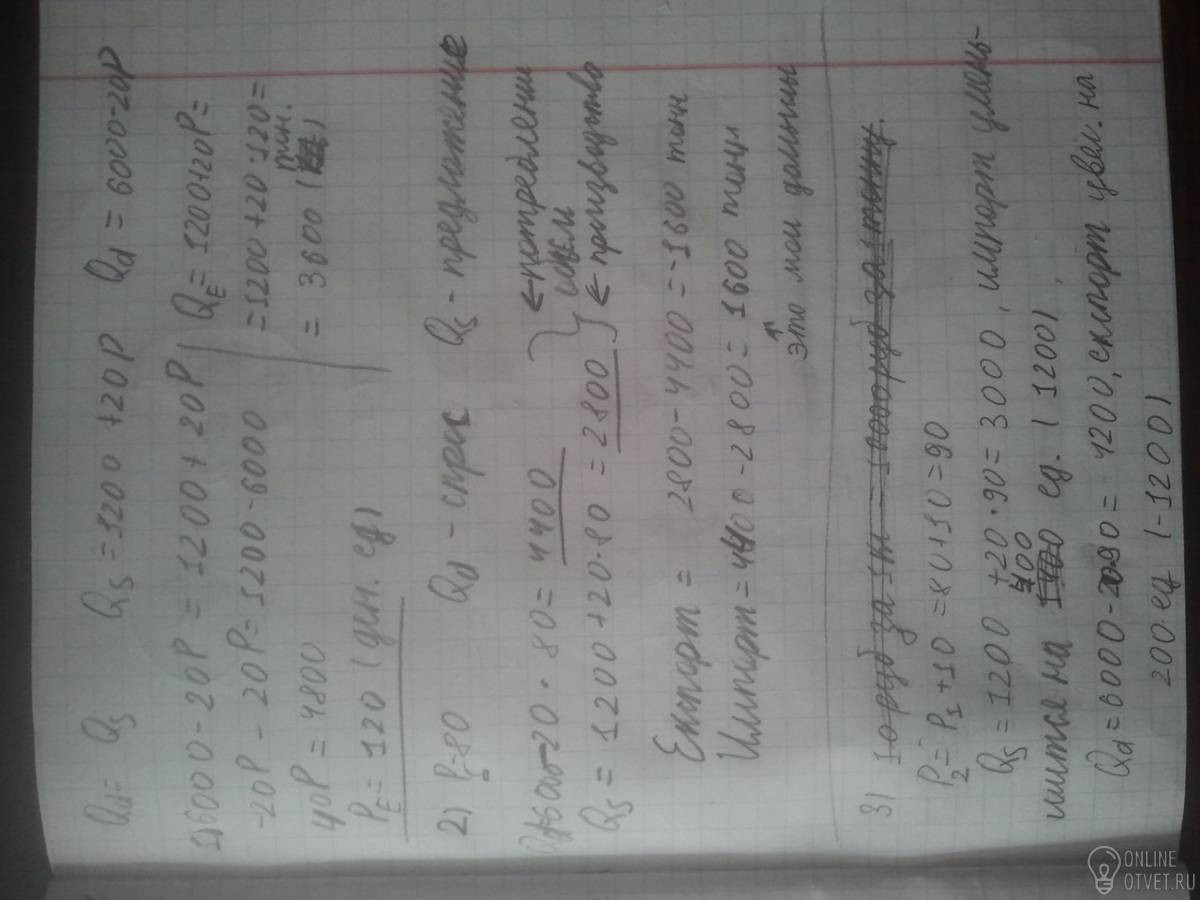 Qd = Qs Qs = 1200 + 20P Qd = 6000-20P
1) 6000-20P = 1200 + 20P
-20P - 20P = 1200-6000
40P = 4800
PE = 120 (ден. ед)
QE = 1200+20P =
= 1200 + 20 · 120 =
= 3600 (тон.)
2) P=80 Qd - спрос Qs - предложение
Qd=6000-20 · 80 = 4400 ← потребление
соли
Qs = 1200 + 20·80 = 2800 ← призвудство
Екпорт = 2800-4400 = -1600 тонн
Импорт = 4400-2800 = 1600 тонны
это мои домины
3) 10 руб за 1кг - 10000 руб за 1 тонну.
P2 = P1 + 10 = 80 + 10 = 90
Qs = 1200 + 20·90 = 3000, импорт умень-
400
шится на 1400 ед. (1200)
Qd = 6000-20·90 = 4200, экспорт увел. на
200 ед (-1200)
ONLINE
OTVET.RU